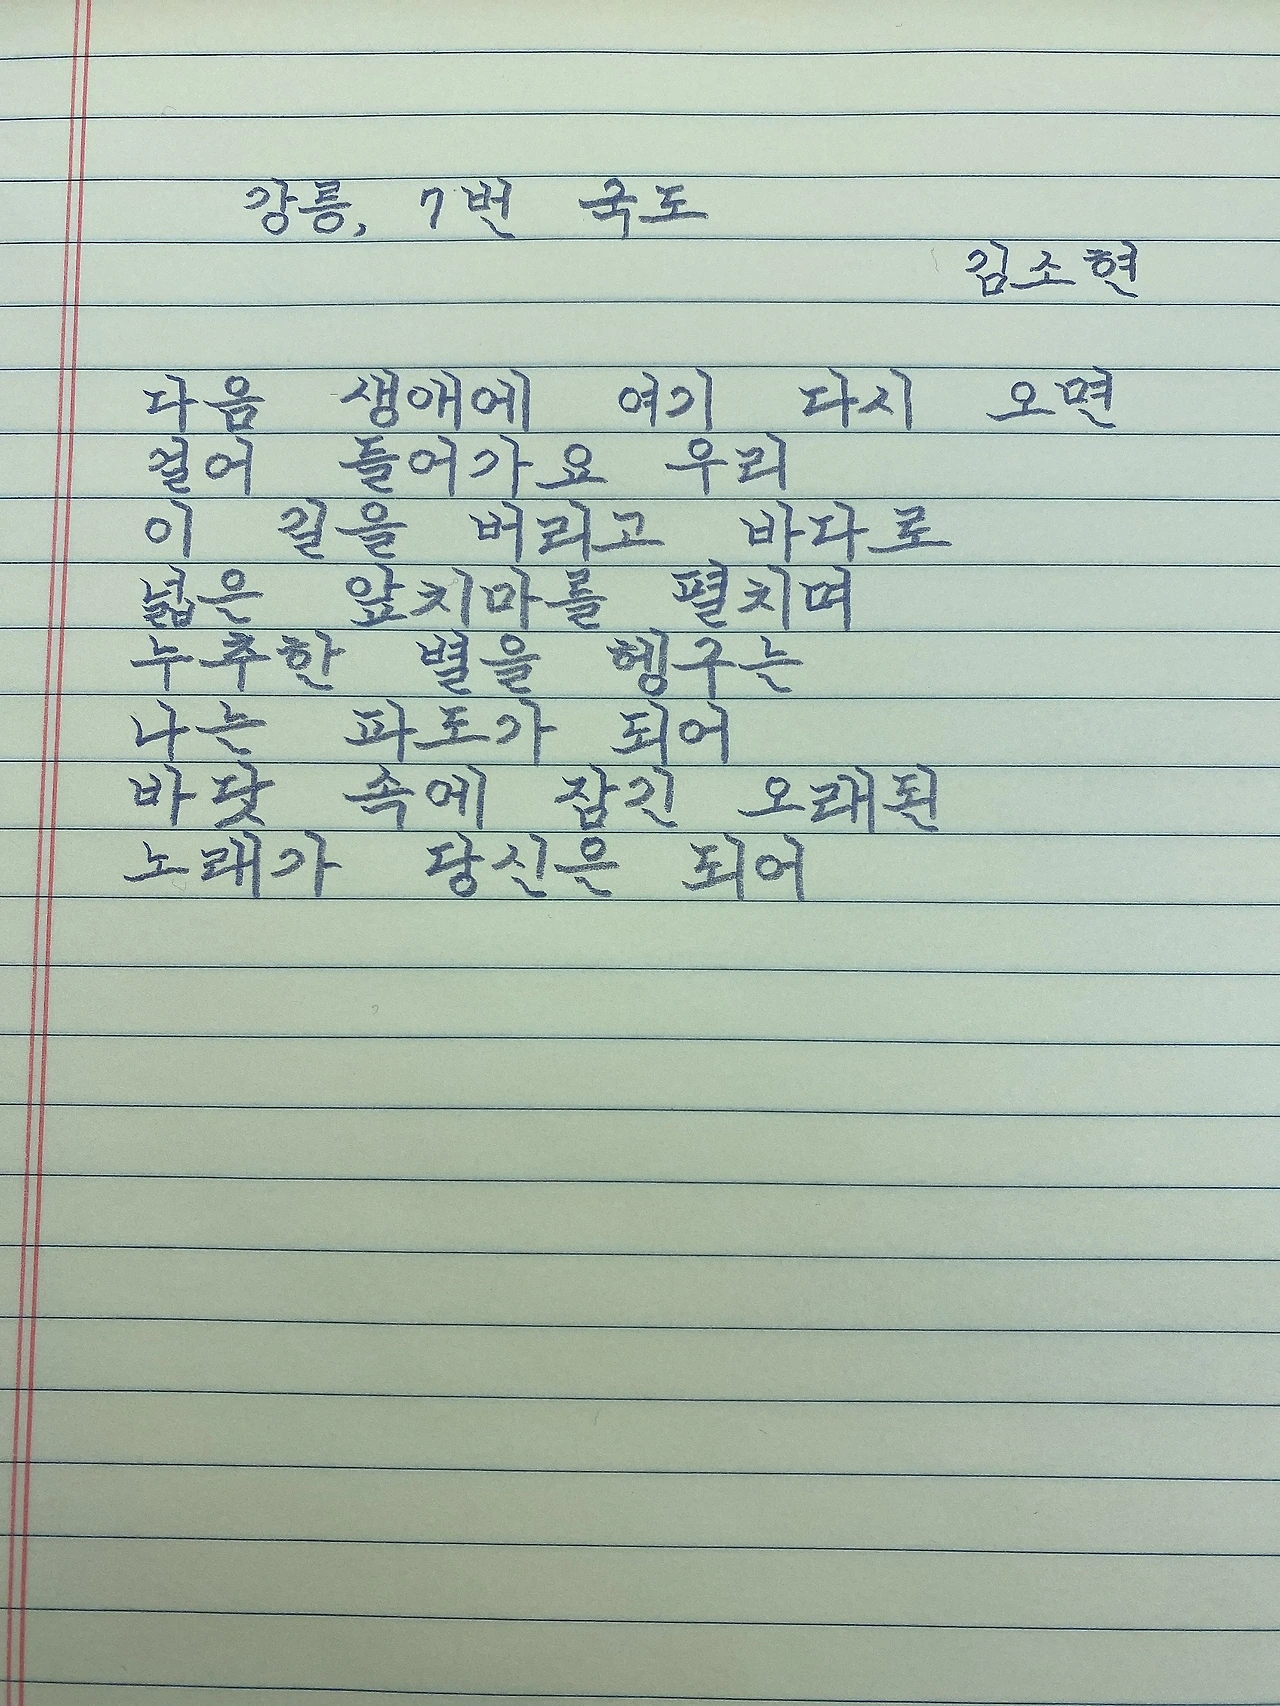 강릉, 7번 국도
김소현
다음 생애에 여기 다시 오면
걸어 들어가요 우리
이 길을 버리고 바다로
넓은 앞치마를 펼치며
누추한 별을 헹구는
나는 파도가 되어
바닷 속에 잠긴 오래된
노래가 당신은 되어